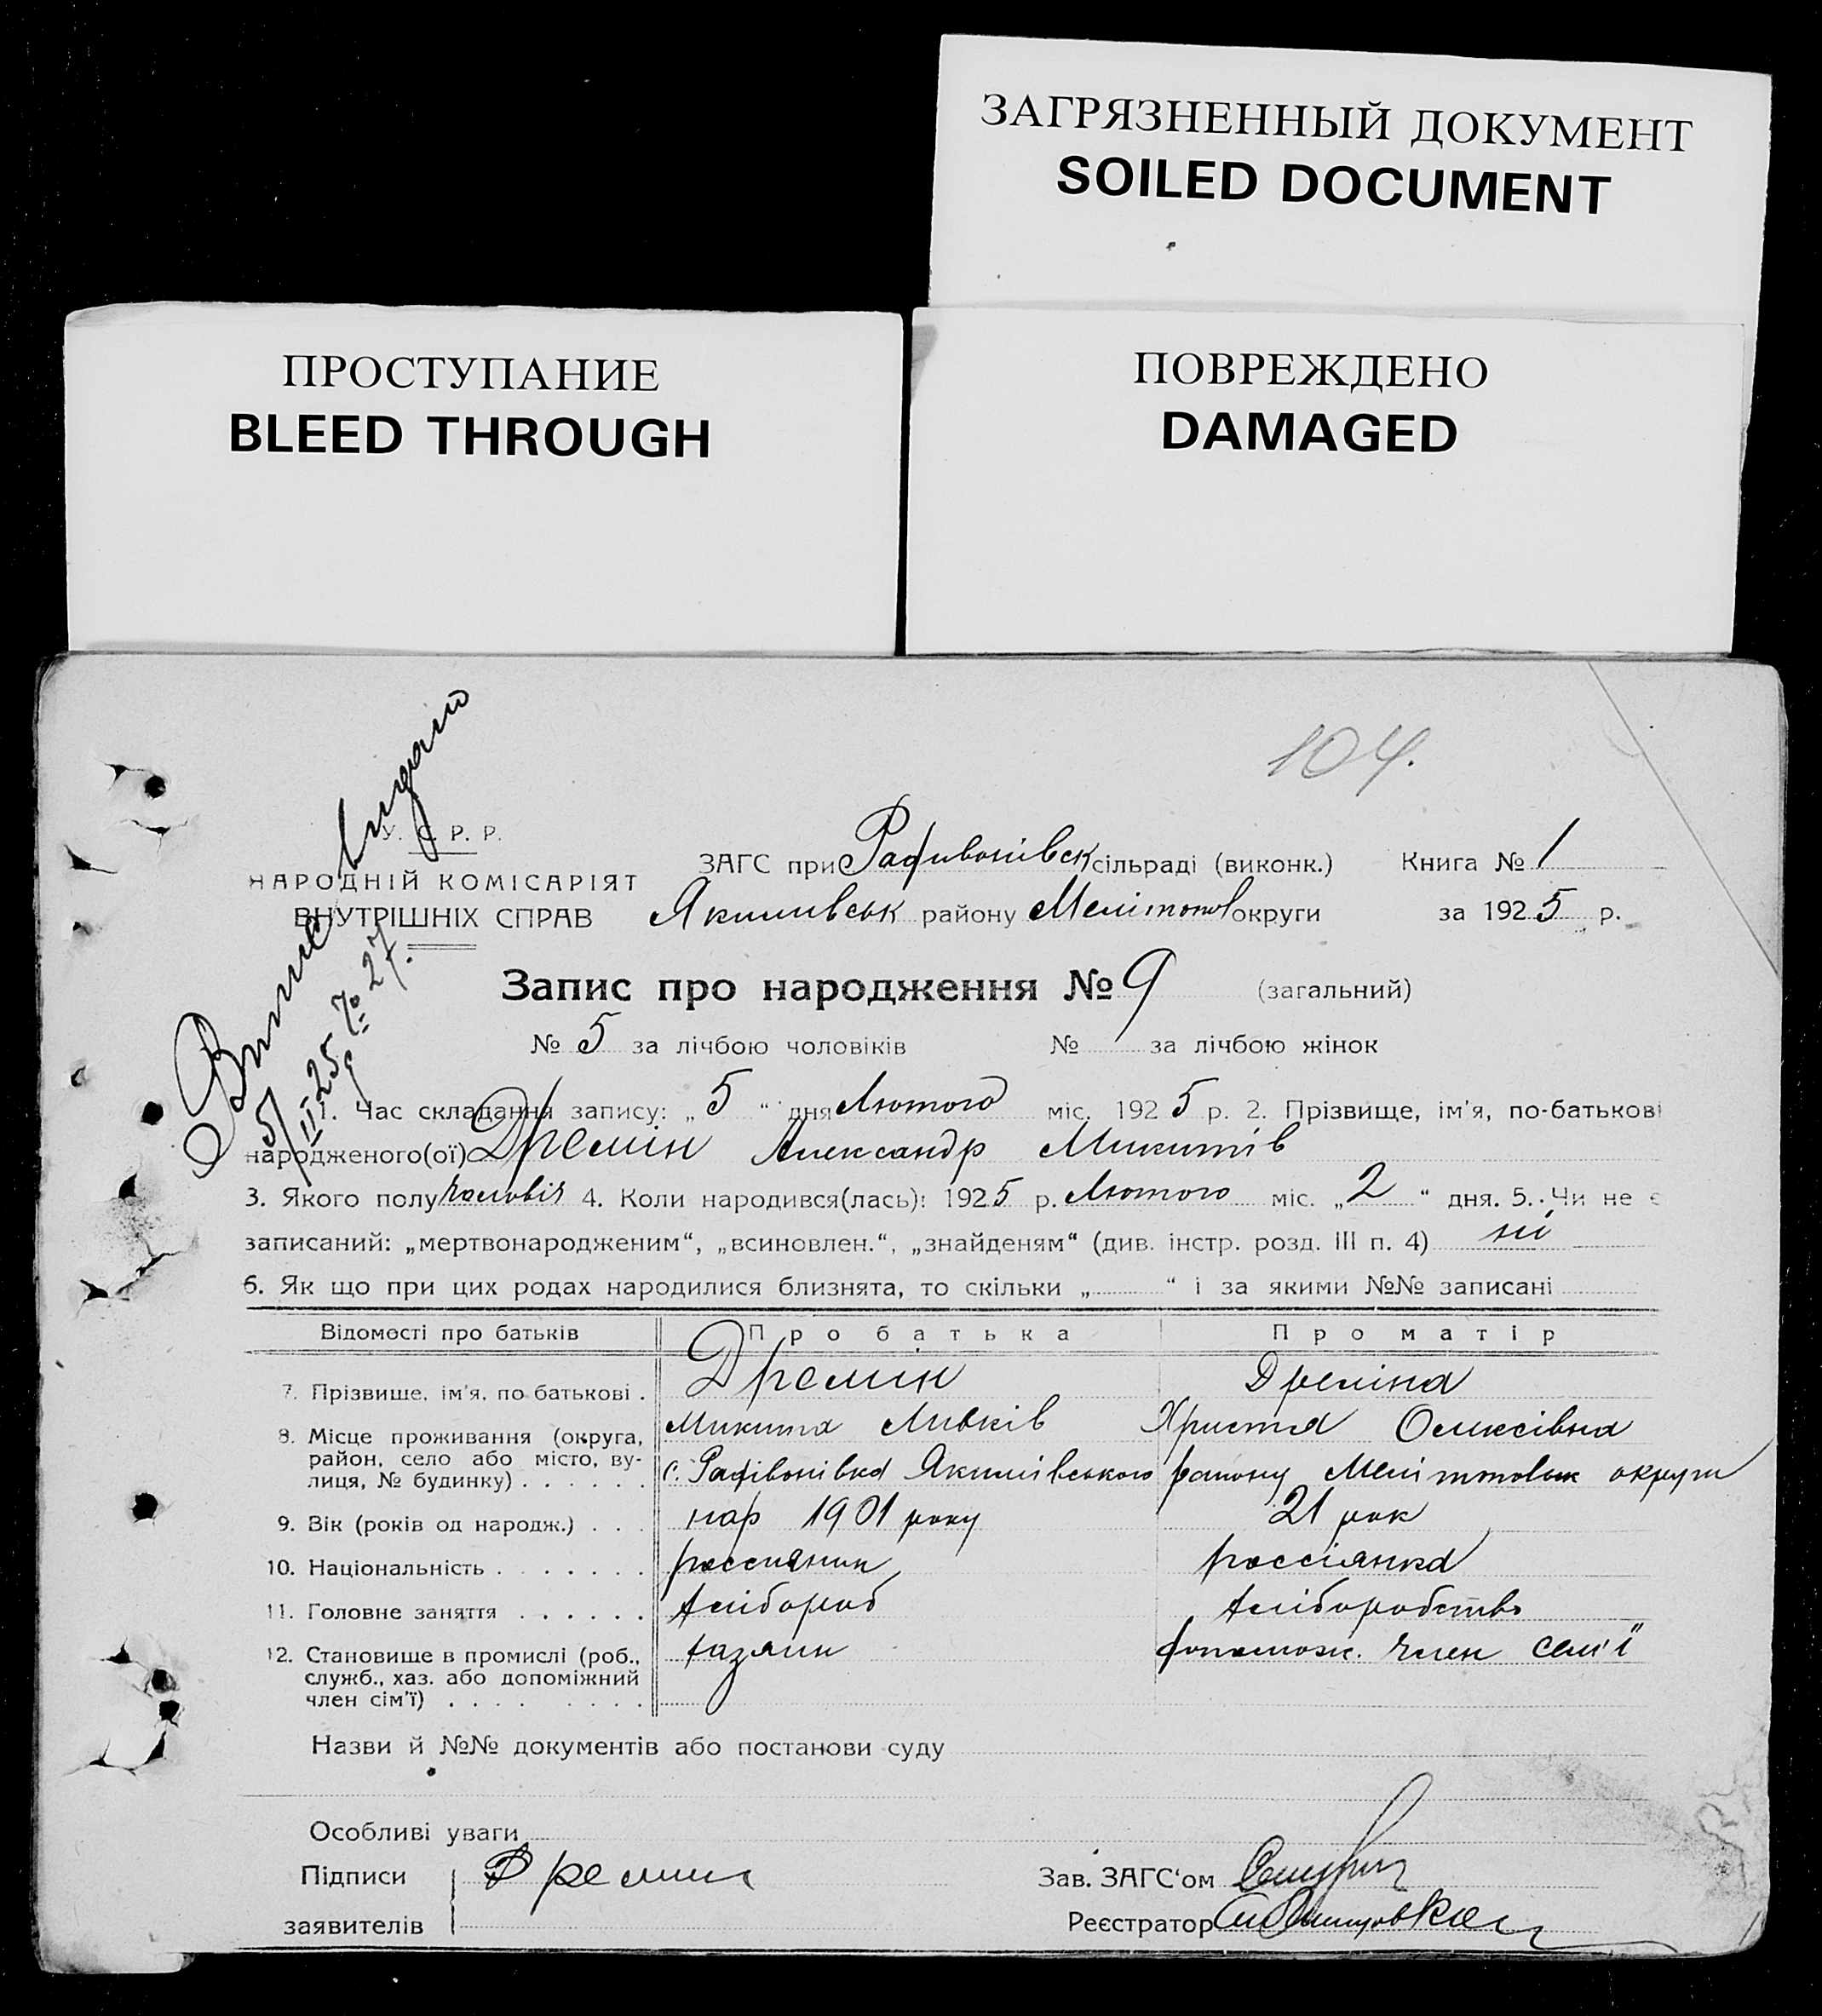 ЗАГРЯЗНЕННЫЙ ДОКУМЕНТ
SOILED DOCUMENT
ПРОСТУПАНИЕ
BLEED THROUGH
ПОВРЕЖДЕНО
DAMAGED
104.
Випис видано
5/II-25 № 27.
У. С. Р. Р.
НАРОДНІЙ КОМІСАРІЯТ
ВНУТРІШНІХ СПРАВ
ЗАГС при Радивонівськ сільраді (виконк.) Книга № 1
Якимівськ району Мелітопол округи за 1925 р.
Запис про народження № 9 (загальний)
№ 5 за лічбою чоловіків № за лічбою жінок
1. Час складання запису: „ 5 “ дня Лютого міс. 1925 р. 2. Прізвище, ім'я, по-батькові
народженого(ої) Дремін Александр Микитів
3. Якого полу чоловіч 4. Коли народився(лась): 1925 р. Лютого міс. „ 2 “ дня. 5. Чи не є
записаний: „мертвонародженим“, „всиновлен.“, „знайденям“ (див. інстр. розд. III п. 4) ні
6. Як що при цих родах народилися близнята, то скільки „ “ і за якими №№ записані
Відомості про батьків Про батька Про матір
7. Прізвище, ім'я, по батькові . Дремин Дреміна
Микита Христя Оликсівна
8. Місце проживання (округа, район, село або місто, вулиця, № будинку) . . . . . . с. Радівонівка Якимівського району Мелітопольск округи
9. Вік (років од народж.) . . . нар 1901 року 21 рок
10. Національність . . . . . . . россиянин россіянка
11. Головне заняття . . . . . . хлібороб хліборобство
12. Становище в промислі (роб., служб., хаз. або допоміжний член сім'ї) . . . . . . . . хазяин допомож. член сем'ї
Назви й №№ документів або постанови суду
Особливі уваги
Підписи Дремин Зав. ЗАГС'ом
заявителів Реєстратор